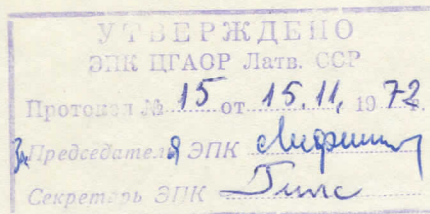 УТВЕРЖДЕНО
ЭПК ЦГАОР Латв. ССР
Протокол № 15 от 15.11. 1972 г.
За Председателя ЭПК
Секретарь ЭПК